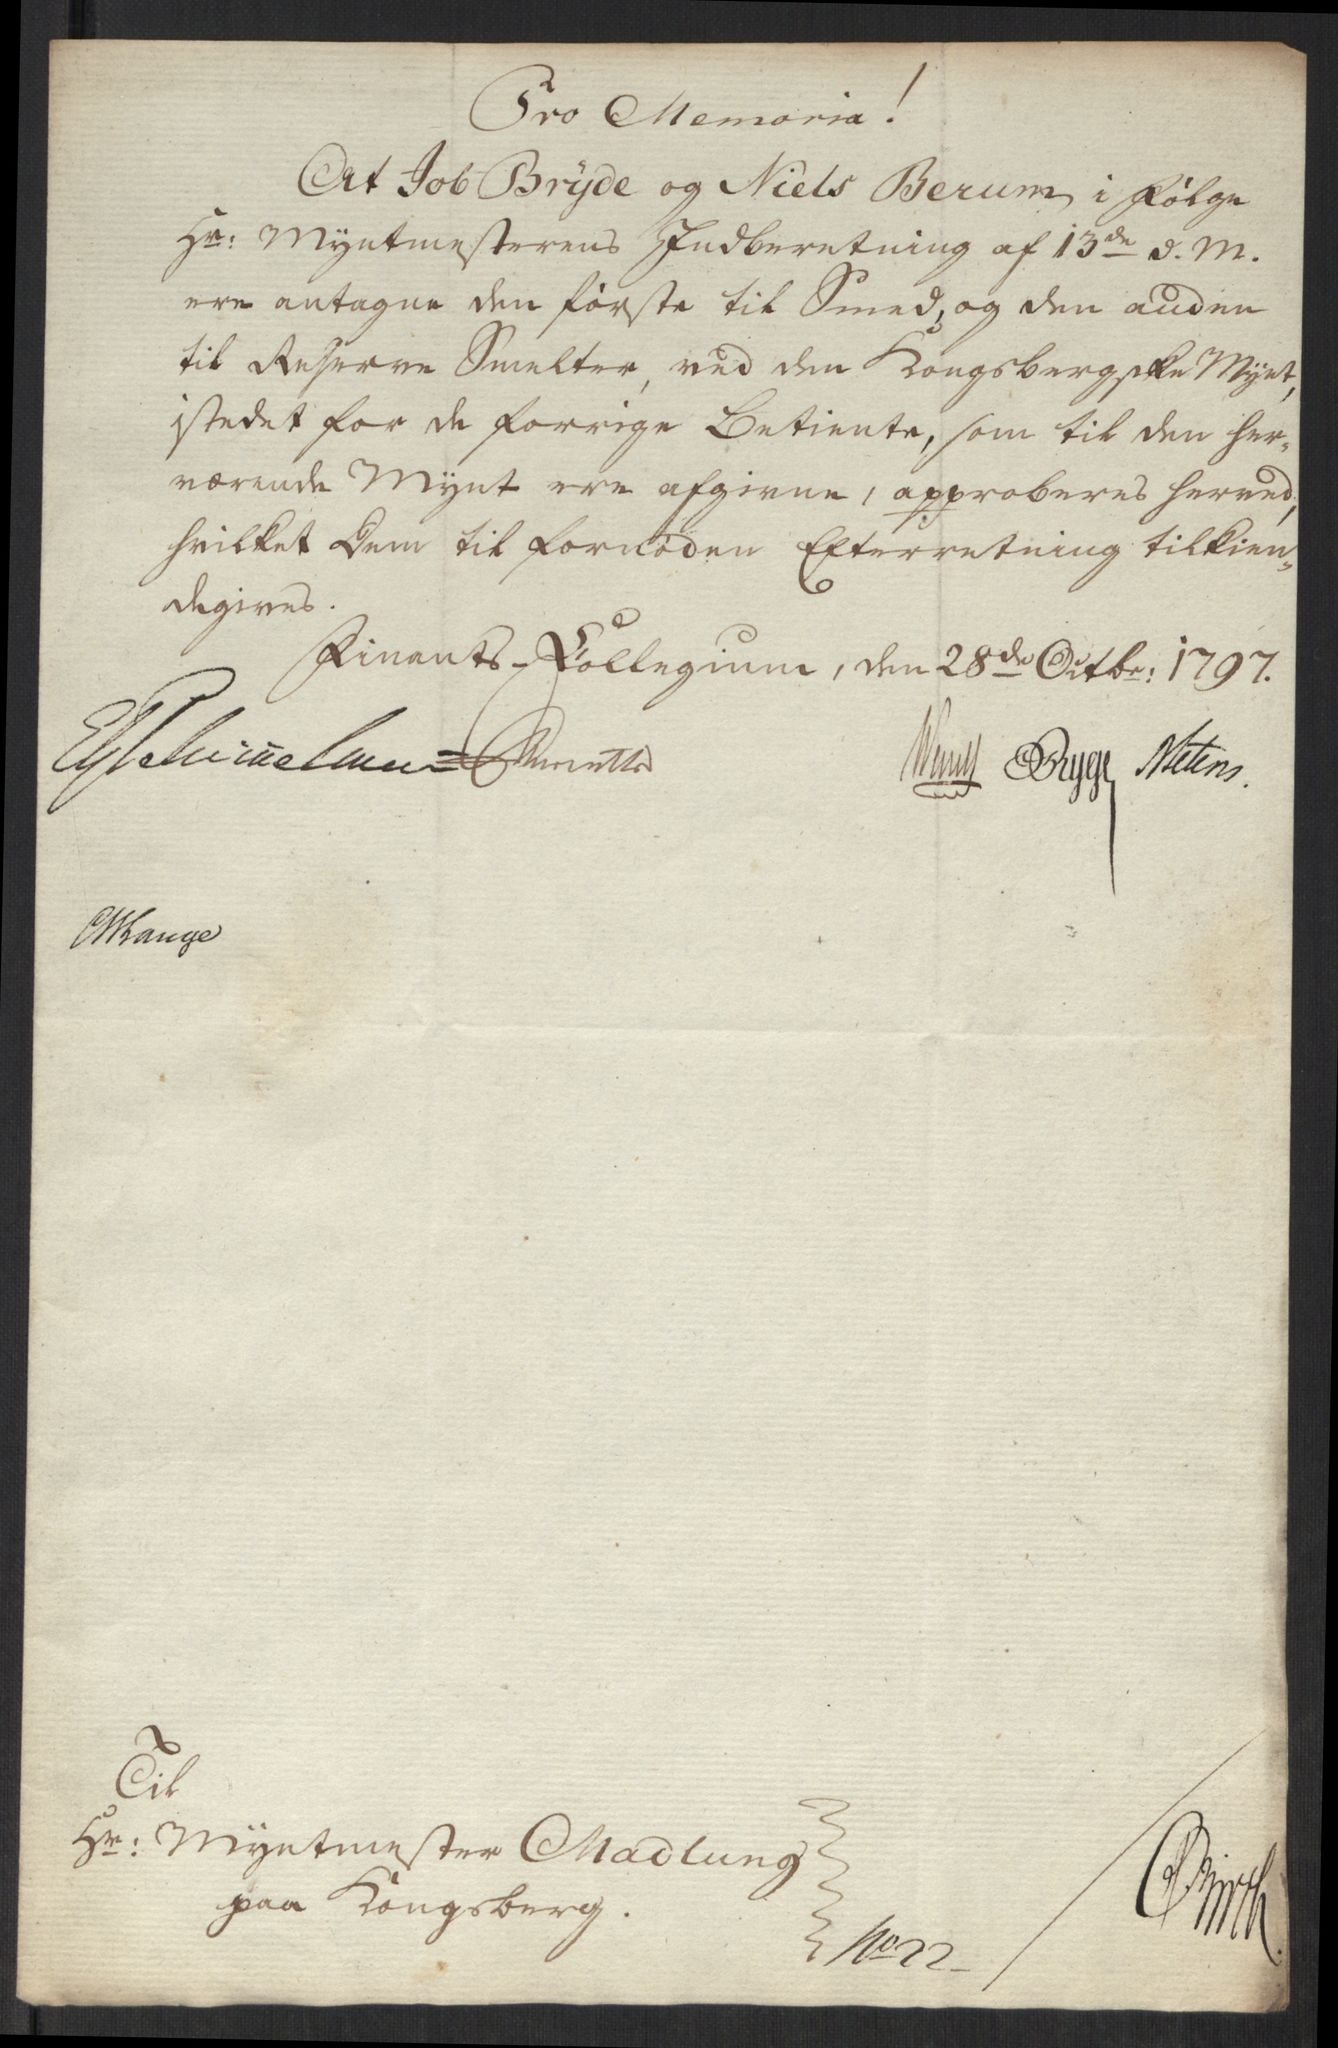 Pro Memoria!
At Job Brÿde og Niels Berum i Følge
Hr: Mÿntmesterens Indberetning af 13de d. M.
ere antagne den første til Smed, og den anden
til Reserve Smelter, ved den Kongsbergske Mÿnt,
istedet for de forrige Betiente, som til den her-
værende Mÿnt ere afgivne, approberes herved,
hvilket Dem til fornøden Efterretning tilkien-
degives.
Finants-Collegium, den 28de Octbr: 1797.
Schimmelmann
Wendt Bryge
Lange
Til
Hr: Mÿntmester Madlung
paa Kongsberg.
No 22